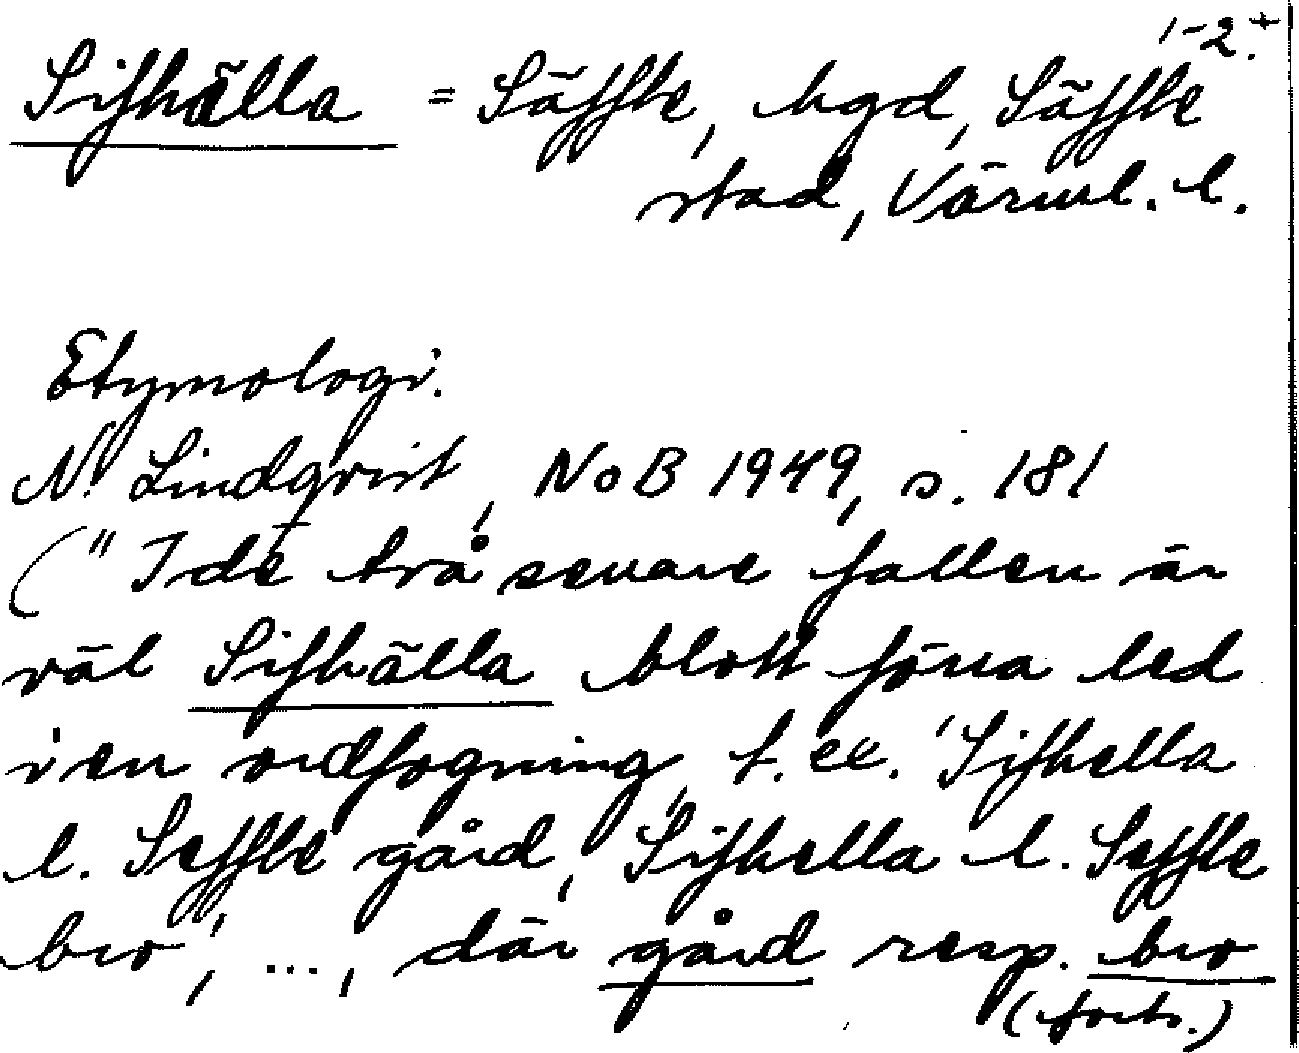 1-2.+
Sifhälla = Säffle, hgd, Säffle
stad, Värml. l.
Etymologi.
N. Lindqvist, NoB 1949, s. 181
("I de två senare fallen är
väl Sifhälla blott förra led
i en ordfogning, t. ex. 'Sifhella
l. Seffle gård', 'Sifhella l. Seffle
bro', ..., där gård resp. bro
(forts.)